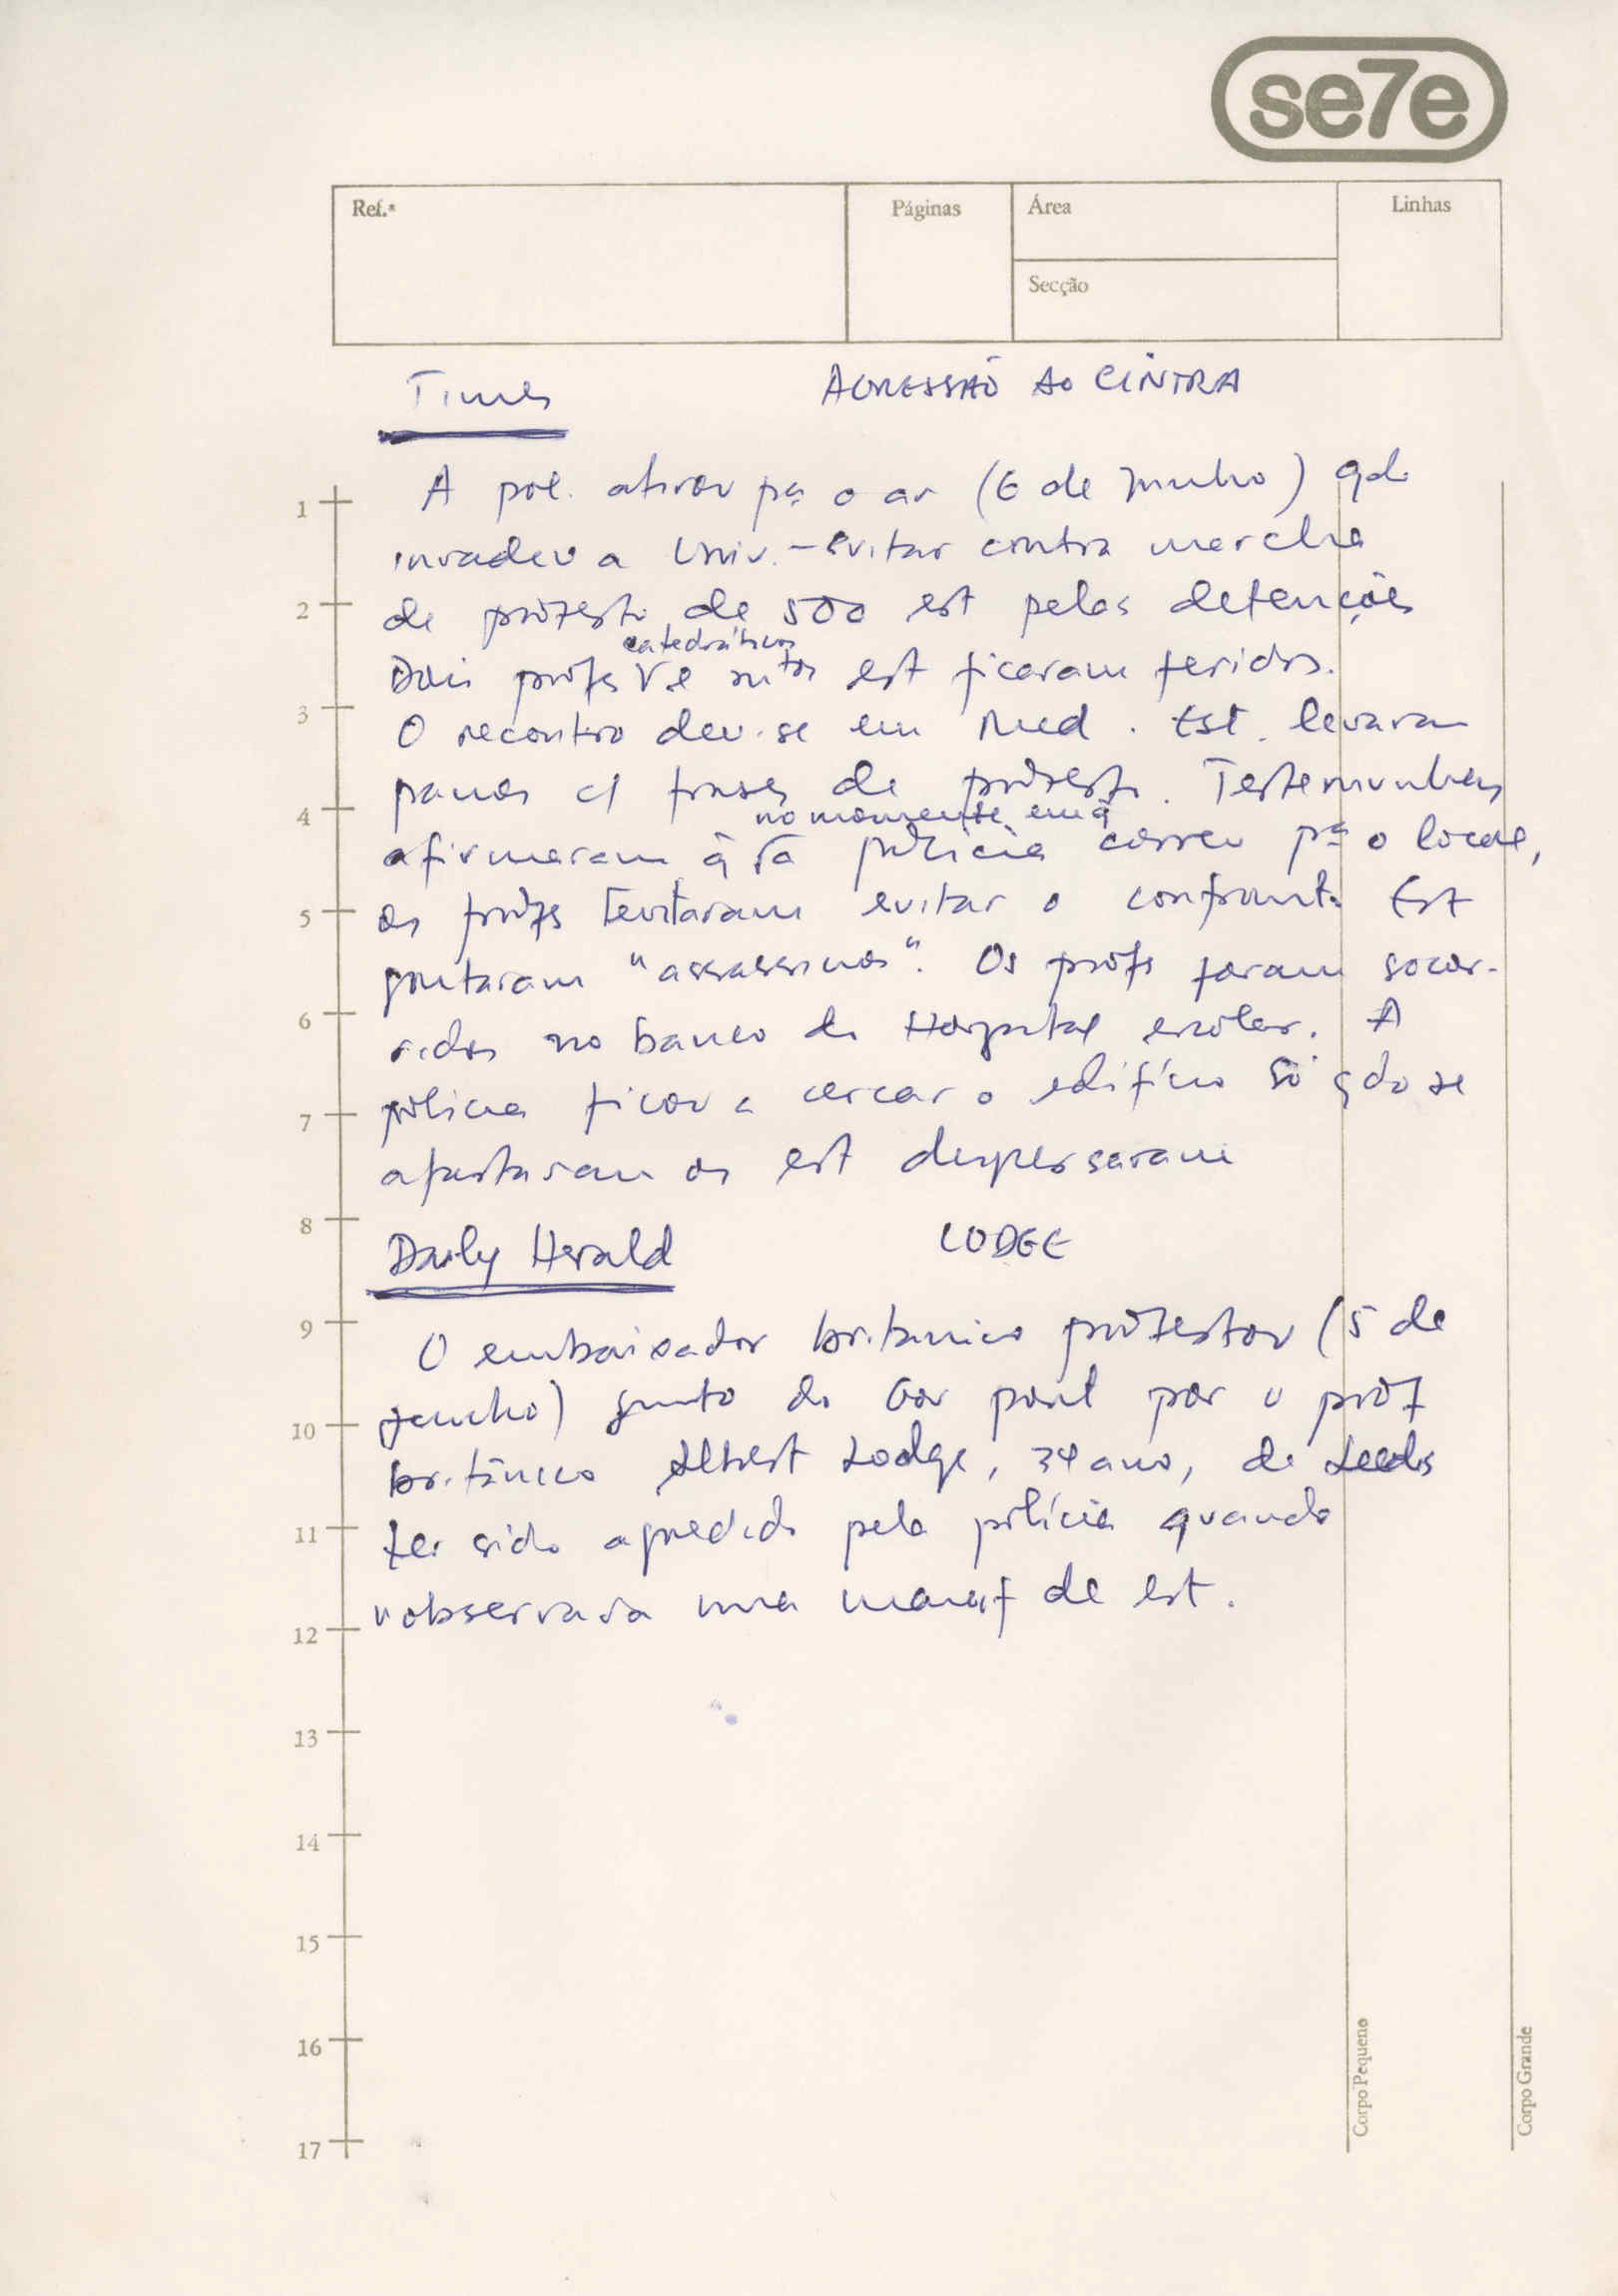 se7e
Ref.ª
Páginas
Área
Linhas
Secção
Times
AGRESSÃO AO CINTRA
1
A pol. atirou pª o ar (6 de Junho) qdo
invadiu a Univ. - Evitar contra marcha
2
de protesto de 500 est pelas detenções
catedráticos
Dois profs e mtos est ficaram feridos.
3
O recontro deu-se em Med. Est. levavam
panos c/ frases de protesto. Testemunhas
4
no momento em q
afirmaram q a polícia correu pª o local,
5
os profs tentaram evitar o confronto Est
gritaram "assassinos". Os profs foram socor-
6
ridos no banco do Hospital escolar. A
polícia ficou a cercar o edifício só qdo se
7
afastaram os est dispersaram
8
Daily Herald
LODGE
9
O embaixador britânico protestou (5 de
junho) junto do Gov port por o prof
10
britânico Albert Lodge, 34 anos, de Leeds
11
ter sido agredido pela polícia quando
observava uma manif de est.
12
13
14
15
16
17
Corpo Pequeno
Corpo Grande